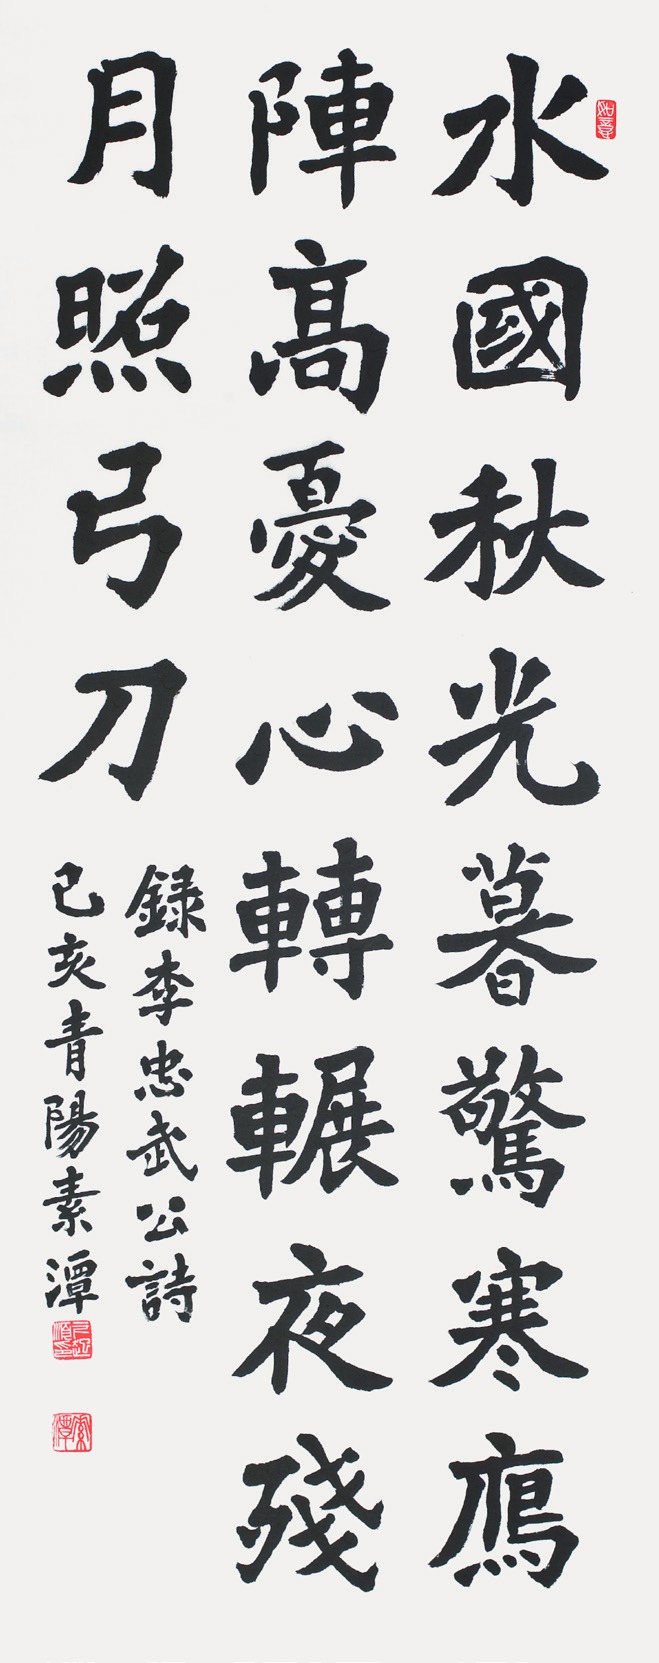 如意
水國秋光暮驚寒鴈
陣髙憂心轉輾夜殘
月照弓刀
録李忠武公詩
己亥青陽素潭
素潭